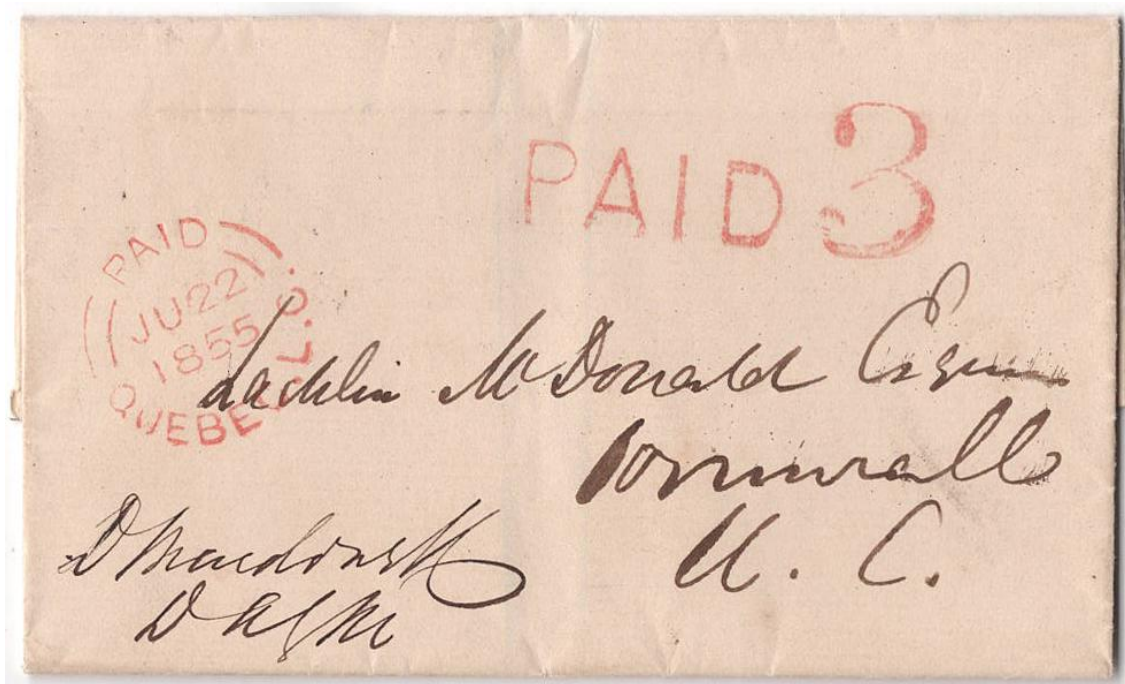 PAID 3
PAID
JU 22
1855
QUEBEC L.C.
Lachlin McDonald Esqr
Cornwall
U. C.
D